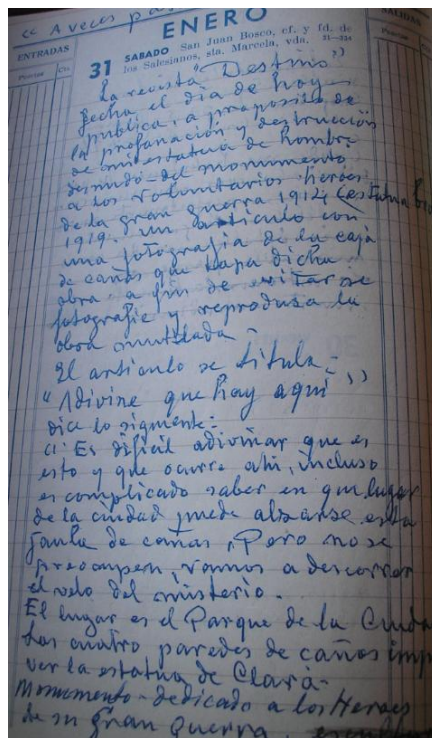 "A veces pa
ENERO
ENTRADAS
SALIDAS
Pesetas
Cts.
Pesetas
31 SABADO San Juan Bosco, cf. y fd. de
los Salesianos, sta. Marcela, vda. 31-334
La revista "Destino"
fecha el dia de hoy
publica, a proposito de
la profanación y destrucción
de mi estatua de hombre
desnudo del monumento
a los voluntarios heroes
de la gran guerra 1914
1919. un articulo con
una fotografia de la caja
de cañas que tapa dicha
obra a fin de evitar se
fotografie y reproduza la
obra mutilada -
El articulo se titula -
"Adivine que hay aqui"
dice lo siguiente:
"Es dificil adivinar que es
esto y que ocurre ahi, incluso
es complicado saber en que lugar
de la ciudad puede alzarse esta
jaula de cañas, Pero no se
preocupen, vamos a descorrer
el velo del misterio.
El lugar es el Parque de la Ciuda
Las cuatro paredes de cañas imp
ver la estatua de Clará -
Monumento - dedicado a los Heroes
de su gran Guerra.